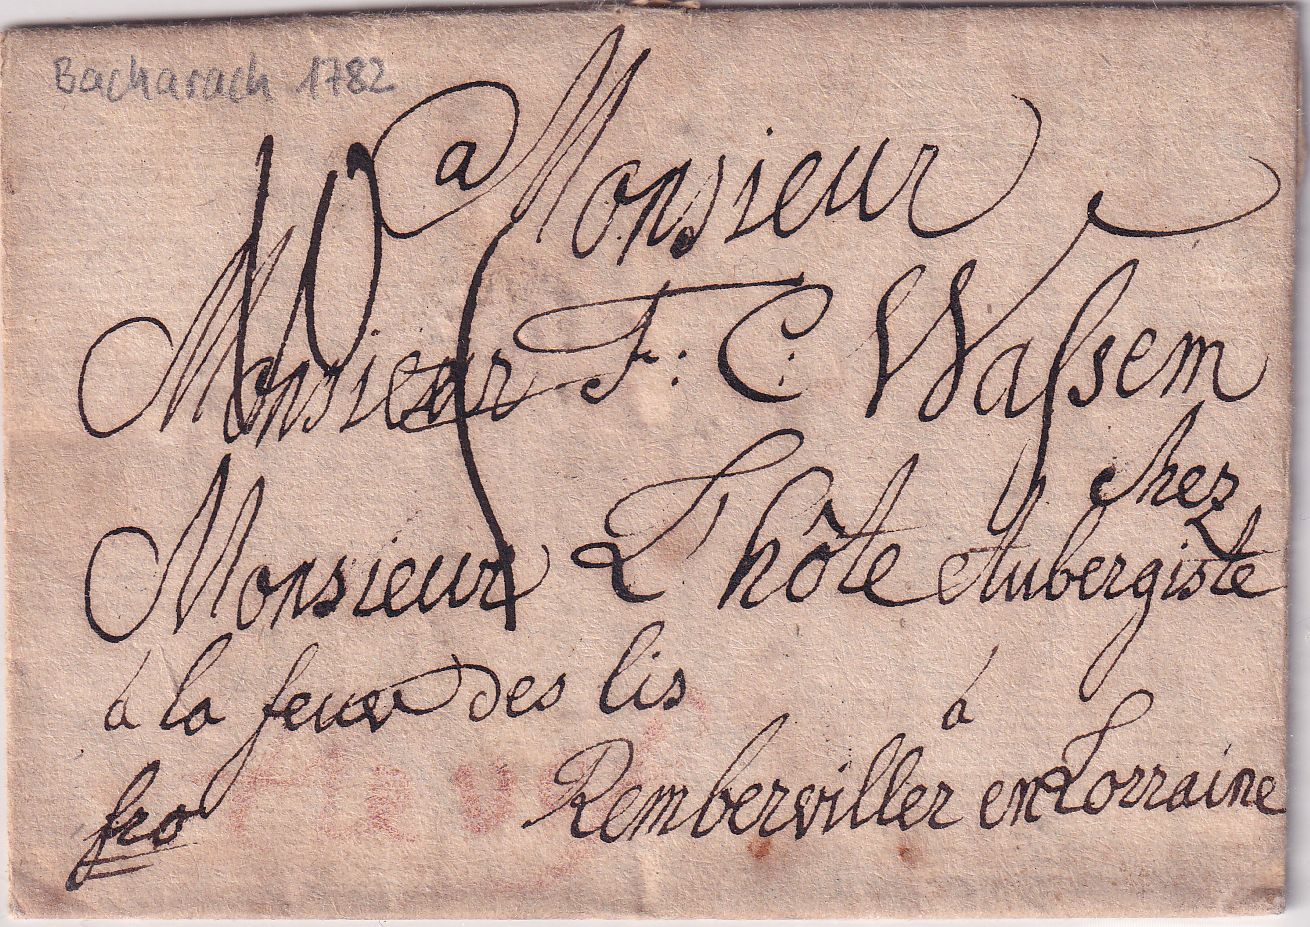 Bacharach 1782
a Monsieur
Monsieur F: C: Wassem
chez
Monsieur L'hôte Aubergiste
à la feur des lis à
fro Remberviller en Lorraine